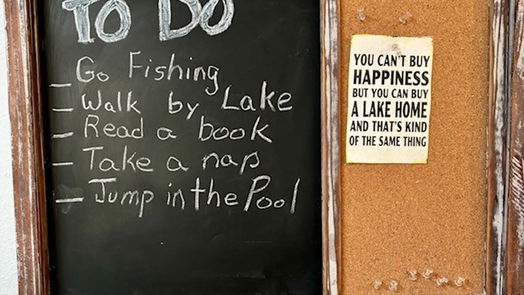 TO DO
_ Go Fishing
_ Walk by Lake
_ Read a book
_ Take a nap
_ Jump in the Pool
YOU CAN'T BUY
HAPPINESS
BUT YOU CAN BUY
A LAKE HOME
AND THAT'S KIND
OF THE SAME THING